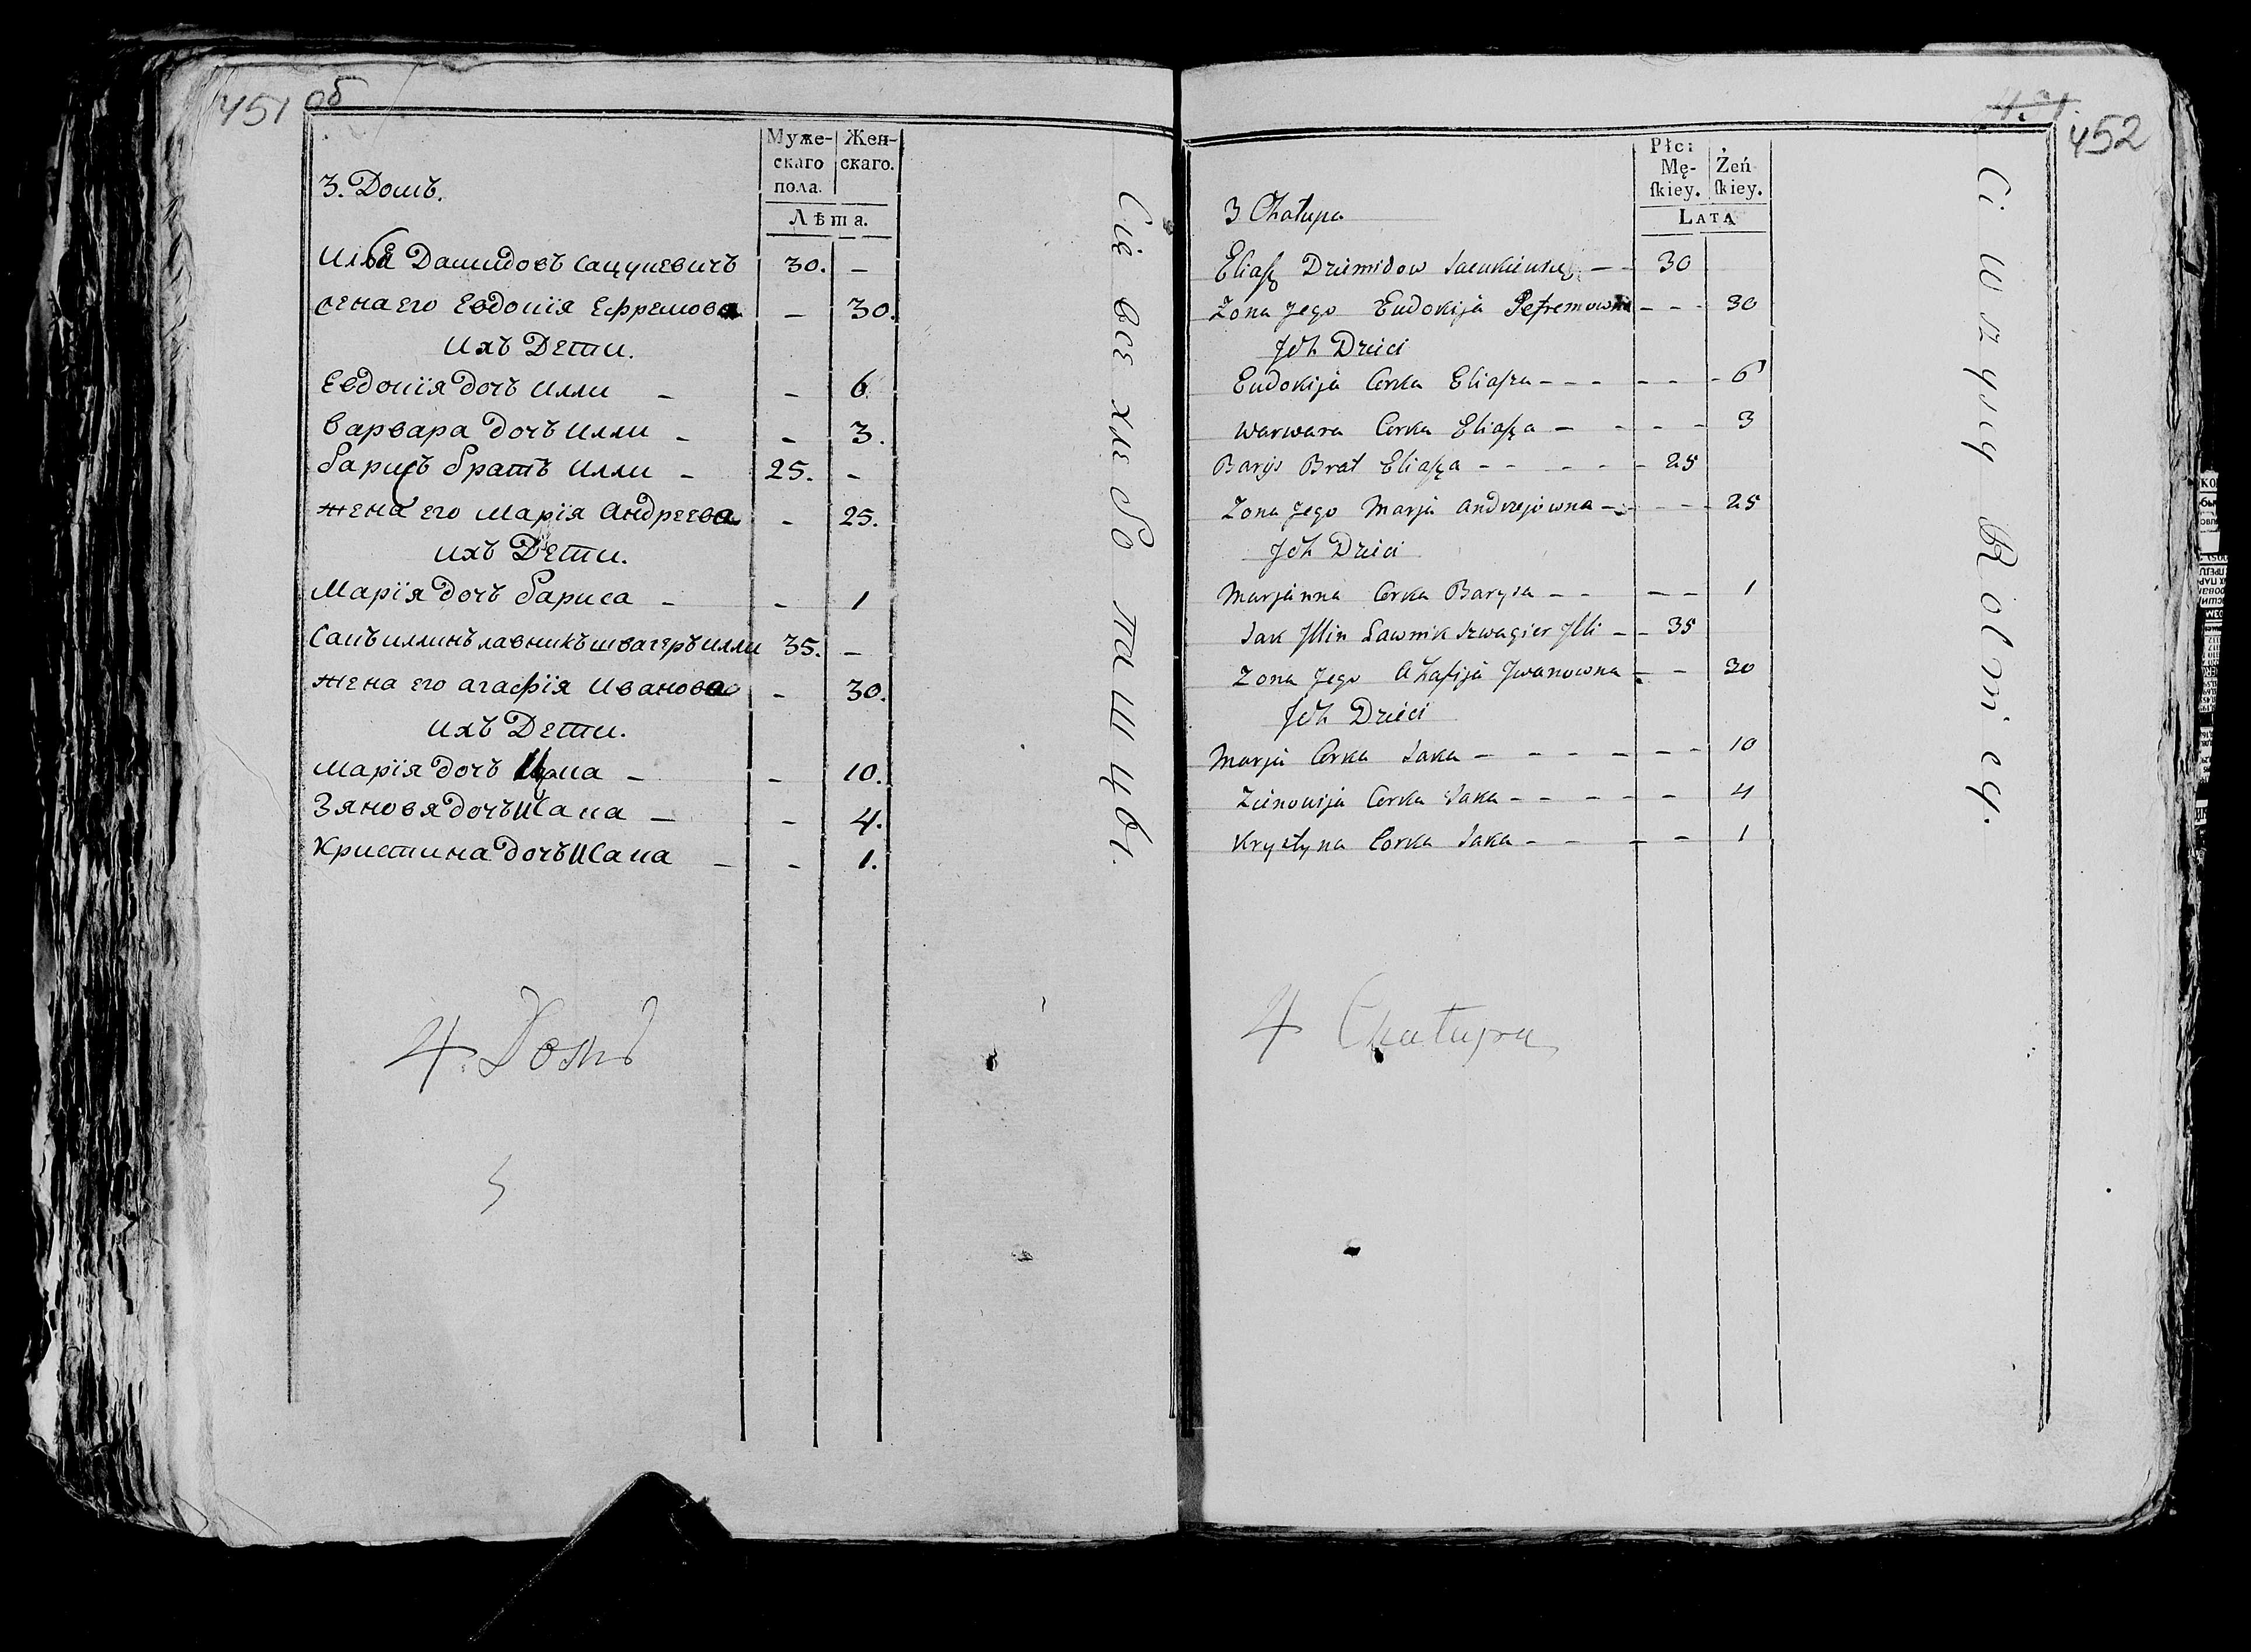 451 об
Муже-
скаго
пола.
Жен-
скаго.
Лѣта.
3. Домъ.
Илья Дамидовъ Сацукевичъ 30. –
жена его Евдокія Ефремова – 30.
ихъ Дети.
Евдокія дочъ Илли – – 6
Варвара дочъ Илли – – 3.
Барисъ братъ Илли – 25. –
жена его Марія Андреева – 25.
ихъ Дети.
Марія дочъ Бариса – – 1
Сакъ иллинъ лавникъ швагеръ илли 35. –
жена его агафія Иванова – 30.
ихъ Дети.
Марія дочъ – – 10.
Зяновя дочъ – – 4.
Кристина дочъ – – 1.
4. Домъ
Сіи все хлебопашцы.
452
Płci
Mę-
ſkiey.
Żeń
ſkiey.
LATA
3 Chałupa
Eliaſz Dziemidow Sacukiewicz – – 30
Zona Jego Eudokija – – – 30
Jch Dzieci
Eudokija Corka Eliaſza – – – – – – 6
Warwara Corka Eliaſza – – – – 3
Barys Brat Eliaſza – – – – – – 25
Zona Jego Marja Andrzejowna – – – – 25
Jch Dzieci
Marjanna Corka Barysa – – – – 1
Sak Jllin Ławnik Szwagier Jlli – – 35
Zona Jego Ahafija Jwanowna – – 30
Jch Dzieci
Marja Corka Saka – – – – – – – 10
Zienowija Corka Saka – – – – – – 4
Krystyna Corka Saka – – – – – 1
4 Chałupa
Ci wszyscy Rolnicy.